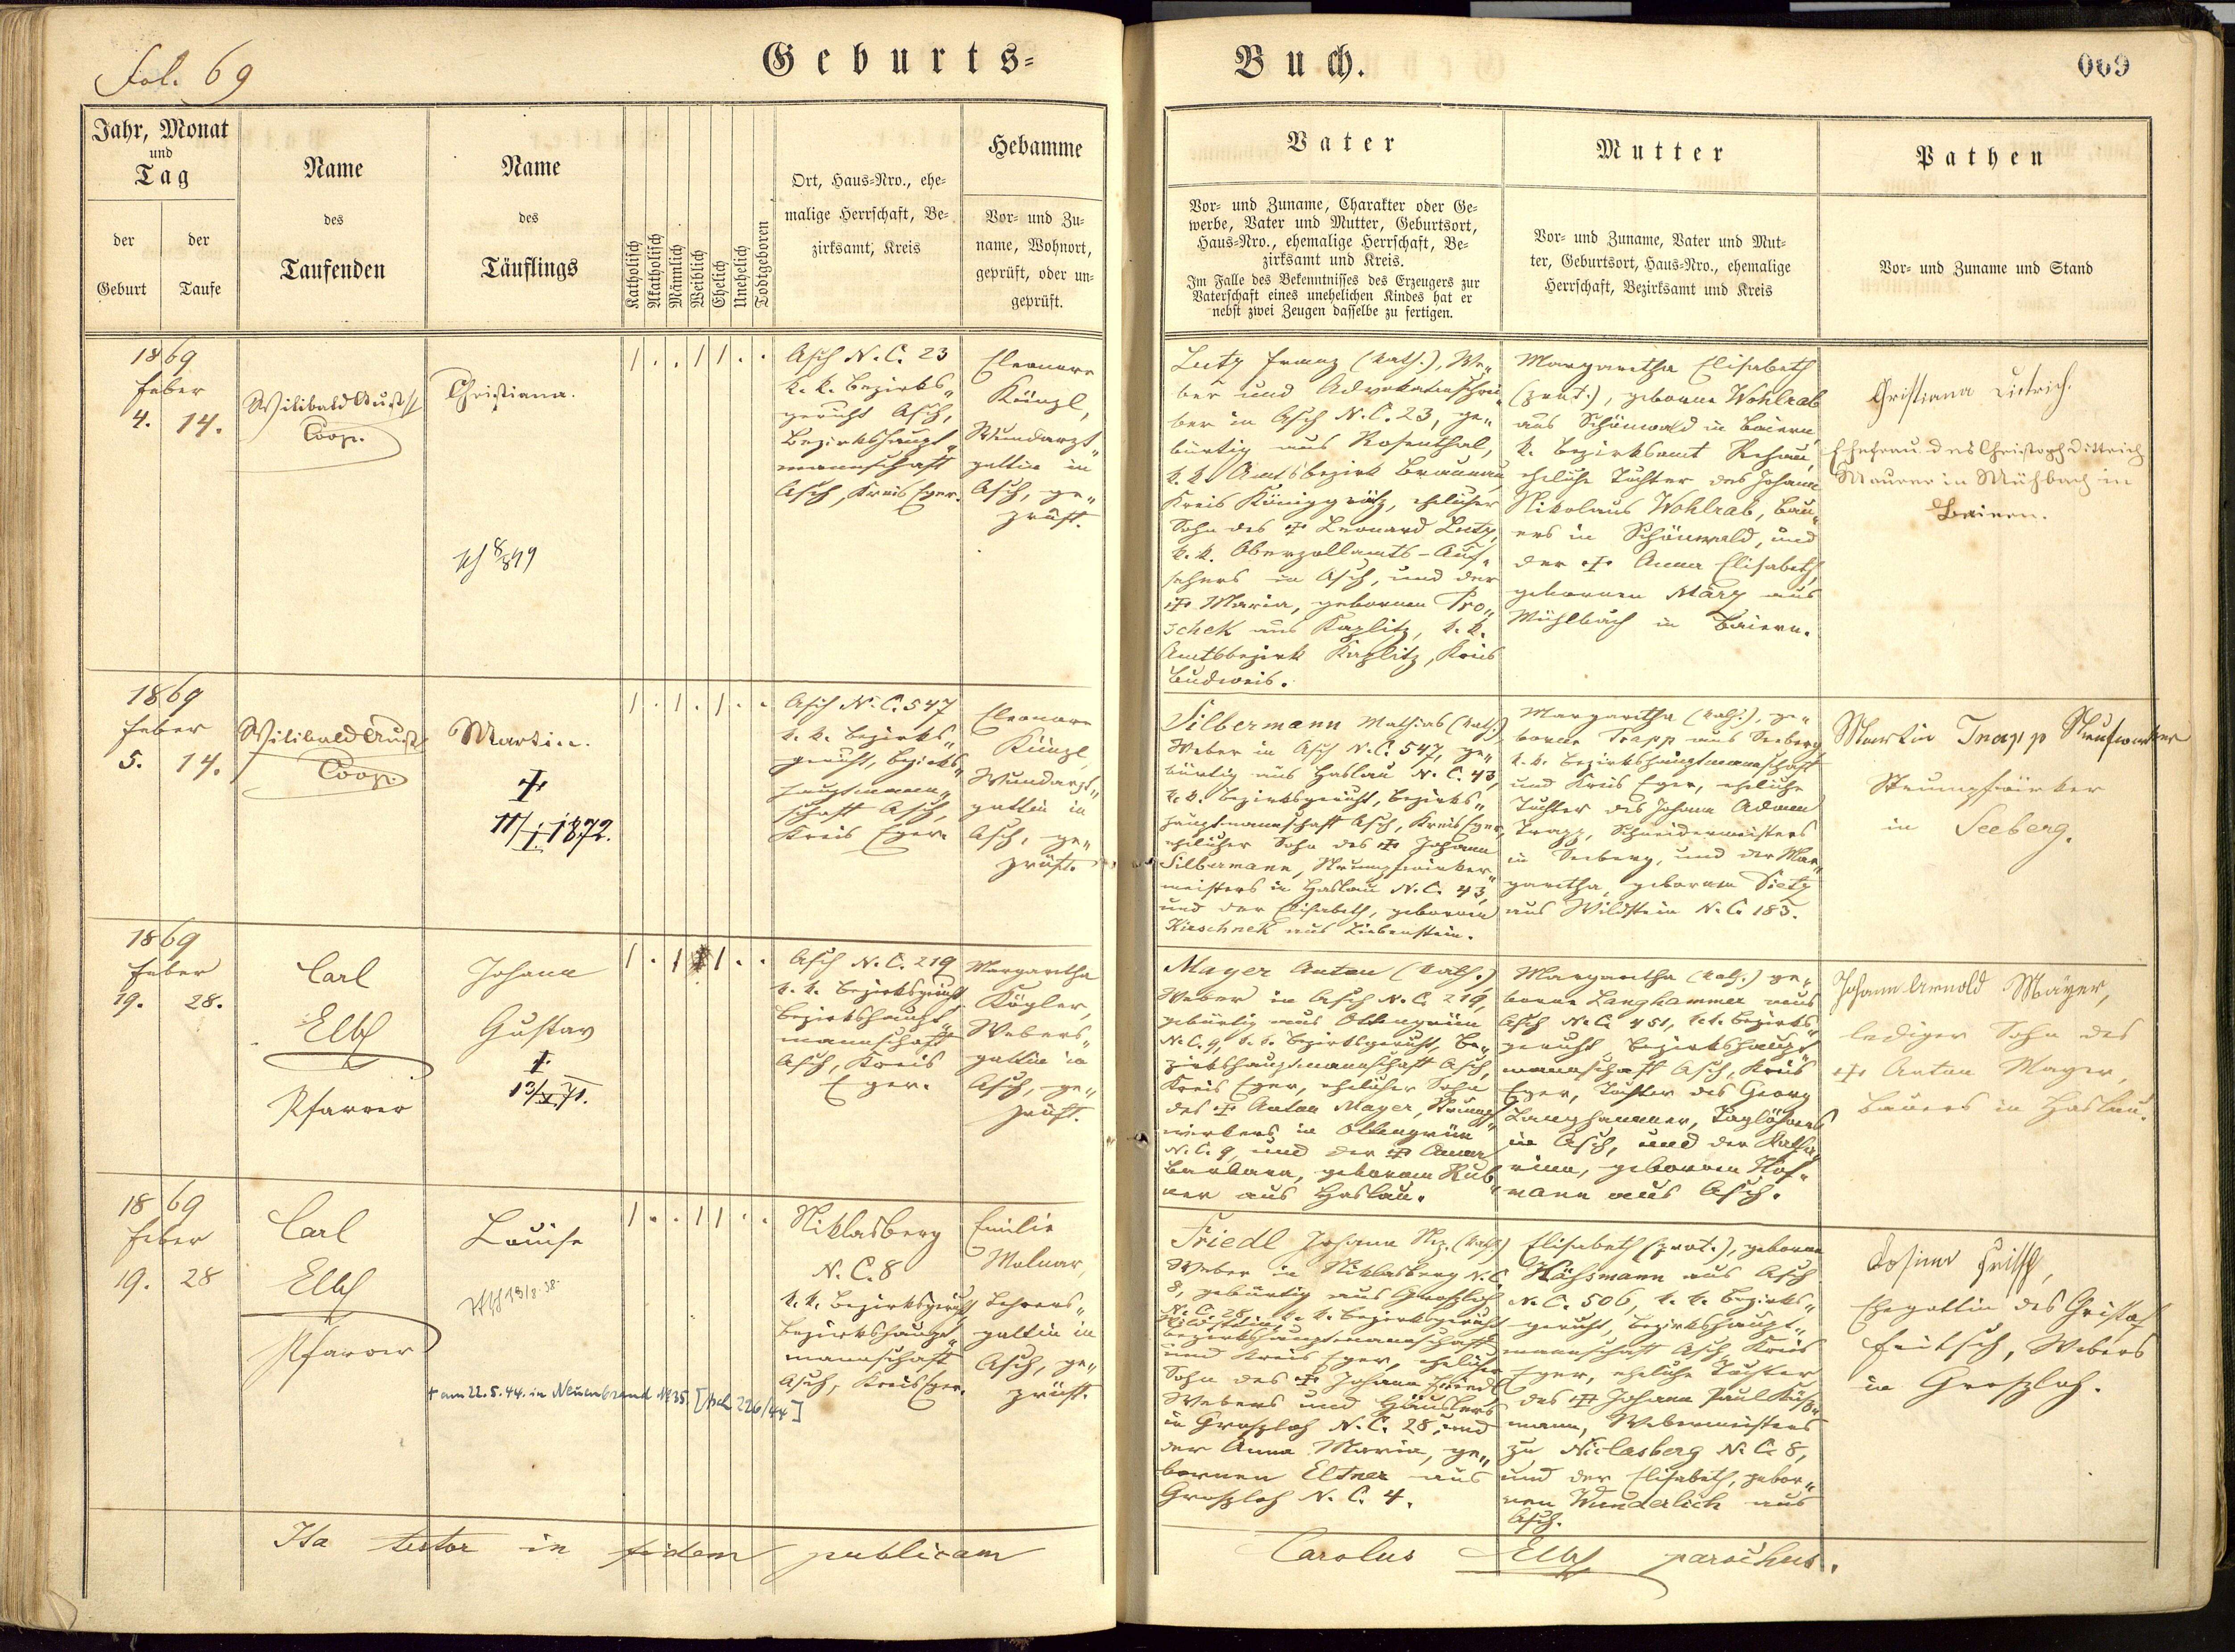 Fol. 69
Geburts=
Buch.
069
Jahr, Monat
und
Tag
der
Geburt
der
Taufe
Name
des
Taufenden
Name
des
Täuflings
Katholisch
Akatholisch
Männlich
Weiblich
Ehelich
Unehelich
Todtgeboren
Ort, Haus=Nro., ehe-
malige Herrschaft, Be-
zirksamt, Kreis
Hebamme
Vor- und Zu-
name, Wohnort,
geprüft, oder un-
geprüft.
Vater
Vor- und Zuname, Charakter oder Ge-
werbe, Vater und Mutter, Geburtsort,
Haus=Nro., ehemalige Herrschaft, Be-
zirksamt und Kreis.
Im Falle des Bekenntnisses des Erzeugers zur
Vaterschaft eines unehelichen Kindes hat er
nebst zwei Zeugen dasselbe zu fertigen.
Mutter
Vor- und Zuname, Vater und Mut-
ter, Geburtsort, Haus=Nro., ehemalige
Herrschaft, Bezirksamt und Kreis
Pathen
Vor- und Zuname und Stand
1869
Feber
4. 14.
Wilibald Aust
Coop.
Christiana.
1 . . 1 1 . .
Asch N. C. 23
k. k. Bezirks„
gericht Asch,
Bezirkshaupt„
mannschaft
Asch, Kreis Eger.
Eleonore
Künzl,
Wundarzt„
gattin in
Asch, ge„
prüft.
Lutz Franz (kath.), We„
ber und Advokatenschrei„
ber in Asch N. C. 23, ge„
bürtig aus Rosenthal,
k. k. Amtsbezirk Braunau,
Kreis Königgrätz, ehelicher
Sohn des † Leonard Lutz,
k. k. Oberzollamts-Auf„
sehers in Asch, und der
† Maria, gebornen Pro„
schek aus Kaplitz, k. k.
Amtsbezirk Kaplitz, Kreis
Budweis.
Margaretha Elisabeth
(prot.), geborne Wohlrab
aus Schönwald in Baiern,
k. Bezirksamt Rehau,
eheliche Tochter des Johann
Nikolaus Wohlrab, Bau„
ers in Schönwald, und
der † Anna Elisabeth,
gebornen März aus
Mühlbach in Baiern.
Christiana Dietrich.
Ehefrau des Christoph Dittrich
Maurer in Mühbach in
Beiern.
1869
Feber
5. 14.
Wilibald Aust
Coop.
Martin.
†
11/I. 1872.
1 . 1 . 1 . .
Asch N. C. 547
k. k. Bezirks„
gericht, Bezirks„
hauptmann„
schaft Asch,
Kreis Eger.
Eleonore
Künzl,
Wundarzt„
gattin in
Asch, ge„
prüft.
Silbermann Mathias (kath.)
Weber in Asch N. C. 547, ge„
bürtig aus Haslau N. C. 43,
k. k. Bezirksgericht, Bezirks„
hauptmannschaft Asch, Kreis Eger,
ehelicher Sohn des † Johann
Silbermann, Strumpfwirker„
meisters in Haslau N. C. 43,
und der Elisabeth, gebornen
Kirschnek aus Liebenstein.
Margaretha (kath.), ge„
borne Trapp aus Seeberg,
k. k. Bezirkshauptmannschaft
und Kreis Eger, eheliche
Tochter des Johann Adam
Trapp, Schneidermeisters
in Seeberg, und der Mar„
garetha, gebornen Sietz
aus Wildstein N. C. 183.
Martin Trapp
Strumpfwirker
in Seeberg.
1869
Feber
19. 28.
Carl
Elbl
Pfarrer
Johann
Gustav
†.
13/X. 71.
1 . 1 1 . .
Asch N. C. 219
k. k. Bezirksgericht
Bezirkshaupt„
mannschaft
Asch, Kreis
Eger.
Margaretha
Kögler,
Webers„
gattin in
Asch, ge„
prüft.
Mayer Anton (kath.)
Weber in Asch N. C. 219,
gebürtig aus Ottengrün
N. C. 9, k. k. Bezirksgericht, Be„
zirkshauptmannschaft Asch,
Kreis Eger, ehelicher Sohn
des † Anton Mayer, Strumpf„
wirkers in Ottengrün
N. C. 9, und der † Anna
Barbara, gebornen Rub„
ner aus Haslau.
Margaretha (kath.) ge„
borne Langhammer aus
Asch N. C. 451, k. k. Bezirks„
gericht Bezirkshaupt„
mannschaft Asch, Kreis
Eger, Tochter des Georg
Langhammer, Taglöhners
in Asch, und der Katha„
rina, gebornen Hof„
mann aus Asch.
Johann Arnold Mayer,
lediger Sohn des
† Anton Mayer,
Bauers in Haslau.
1869
Feber
19. 28
Carl
Elbl
Pfarrer
Louise
† am 22.5.44. in Neuenbrand № 35. [Asch 226/44]
1 . . 1 1 . .
Niklasberg
N. C. 8
k. k. Bezirksgericht
Bezirkshaupt„
mannschaft
Asch, Kreis Eger.
Emilie
Molnar,
Lehrers„
gattin in
Asch, ge„
prüft.
Friedl Johann (kath.)
Weber in Niklasberg N. C.
8, gebürtig aus Grosloh
N. C. 28, k. k. Bezirksgericht
Wildstein,
Bezirkshauptmannschaft
und Kreis Eger, ehelicher
Sohn des † Johann Friedl
Webers und Häuslers
in Grosloh N. C. 28, und
der Anna Maria, ge„
bornen Eltner aus
Grosloh N. C. 4.
Elisabeth (prot.), geborne
Käßmann aus Asch
N. C. 506, k. k. Bezirks„
gericht, Bezirkshaupt„
mannschaft Asch, Kreis
Eger, eheliche Tochter
des † Johann Paul Käß„
mann, Webermeisters
zu Niclasberg N. C. 8,
und der Elisabeth, gebor„
nen Wunderlich aus
Asch.
Rosina
Ehegattin des Christof
Fritsch, Webers
in Grosloh.
Ita testor in fidem publicam
Carolus Elbl parochus.